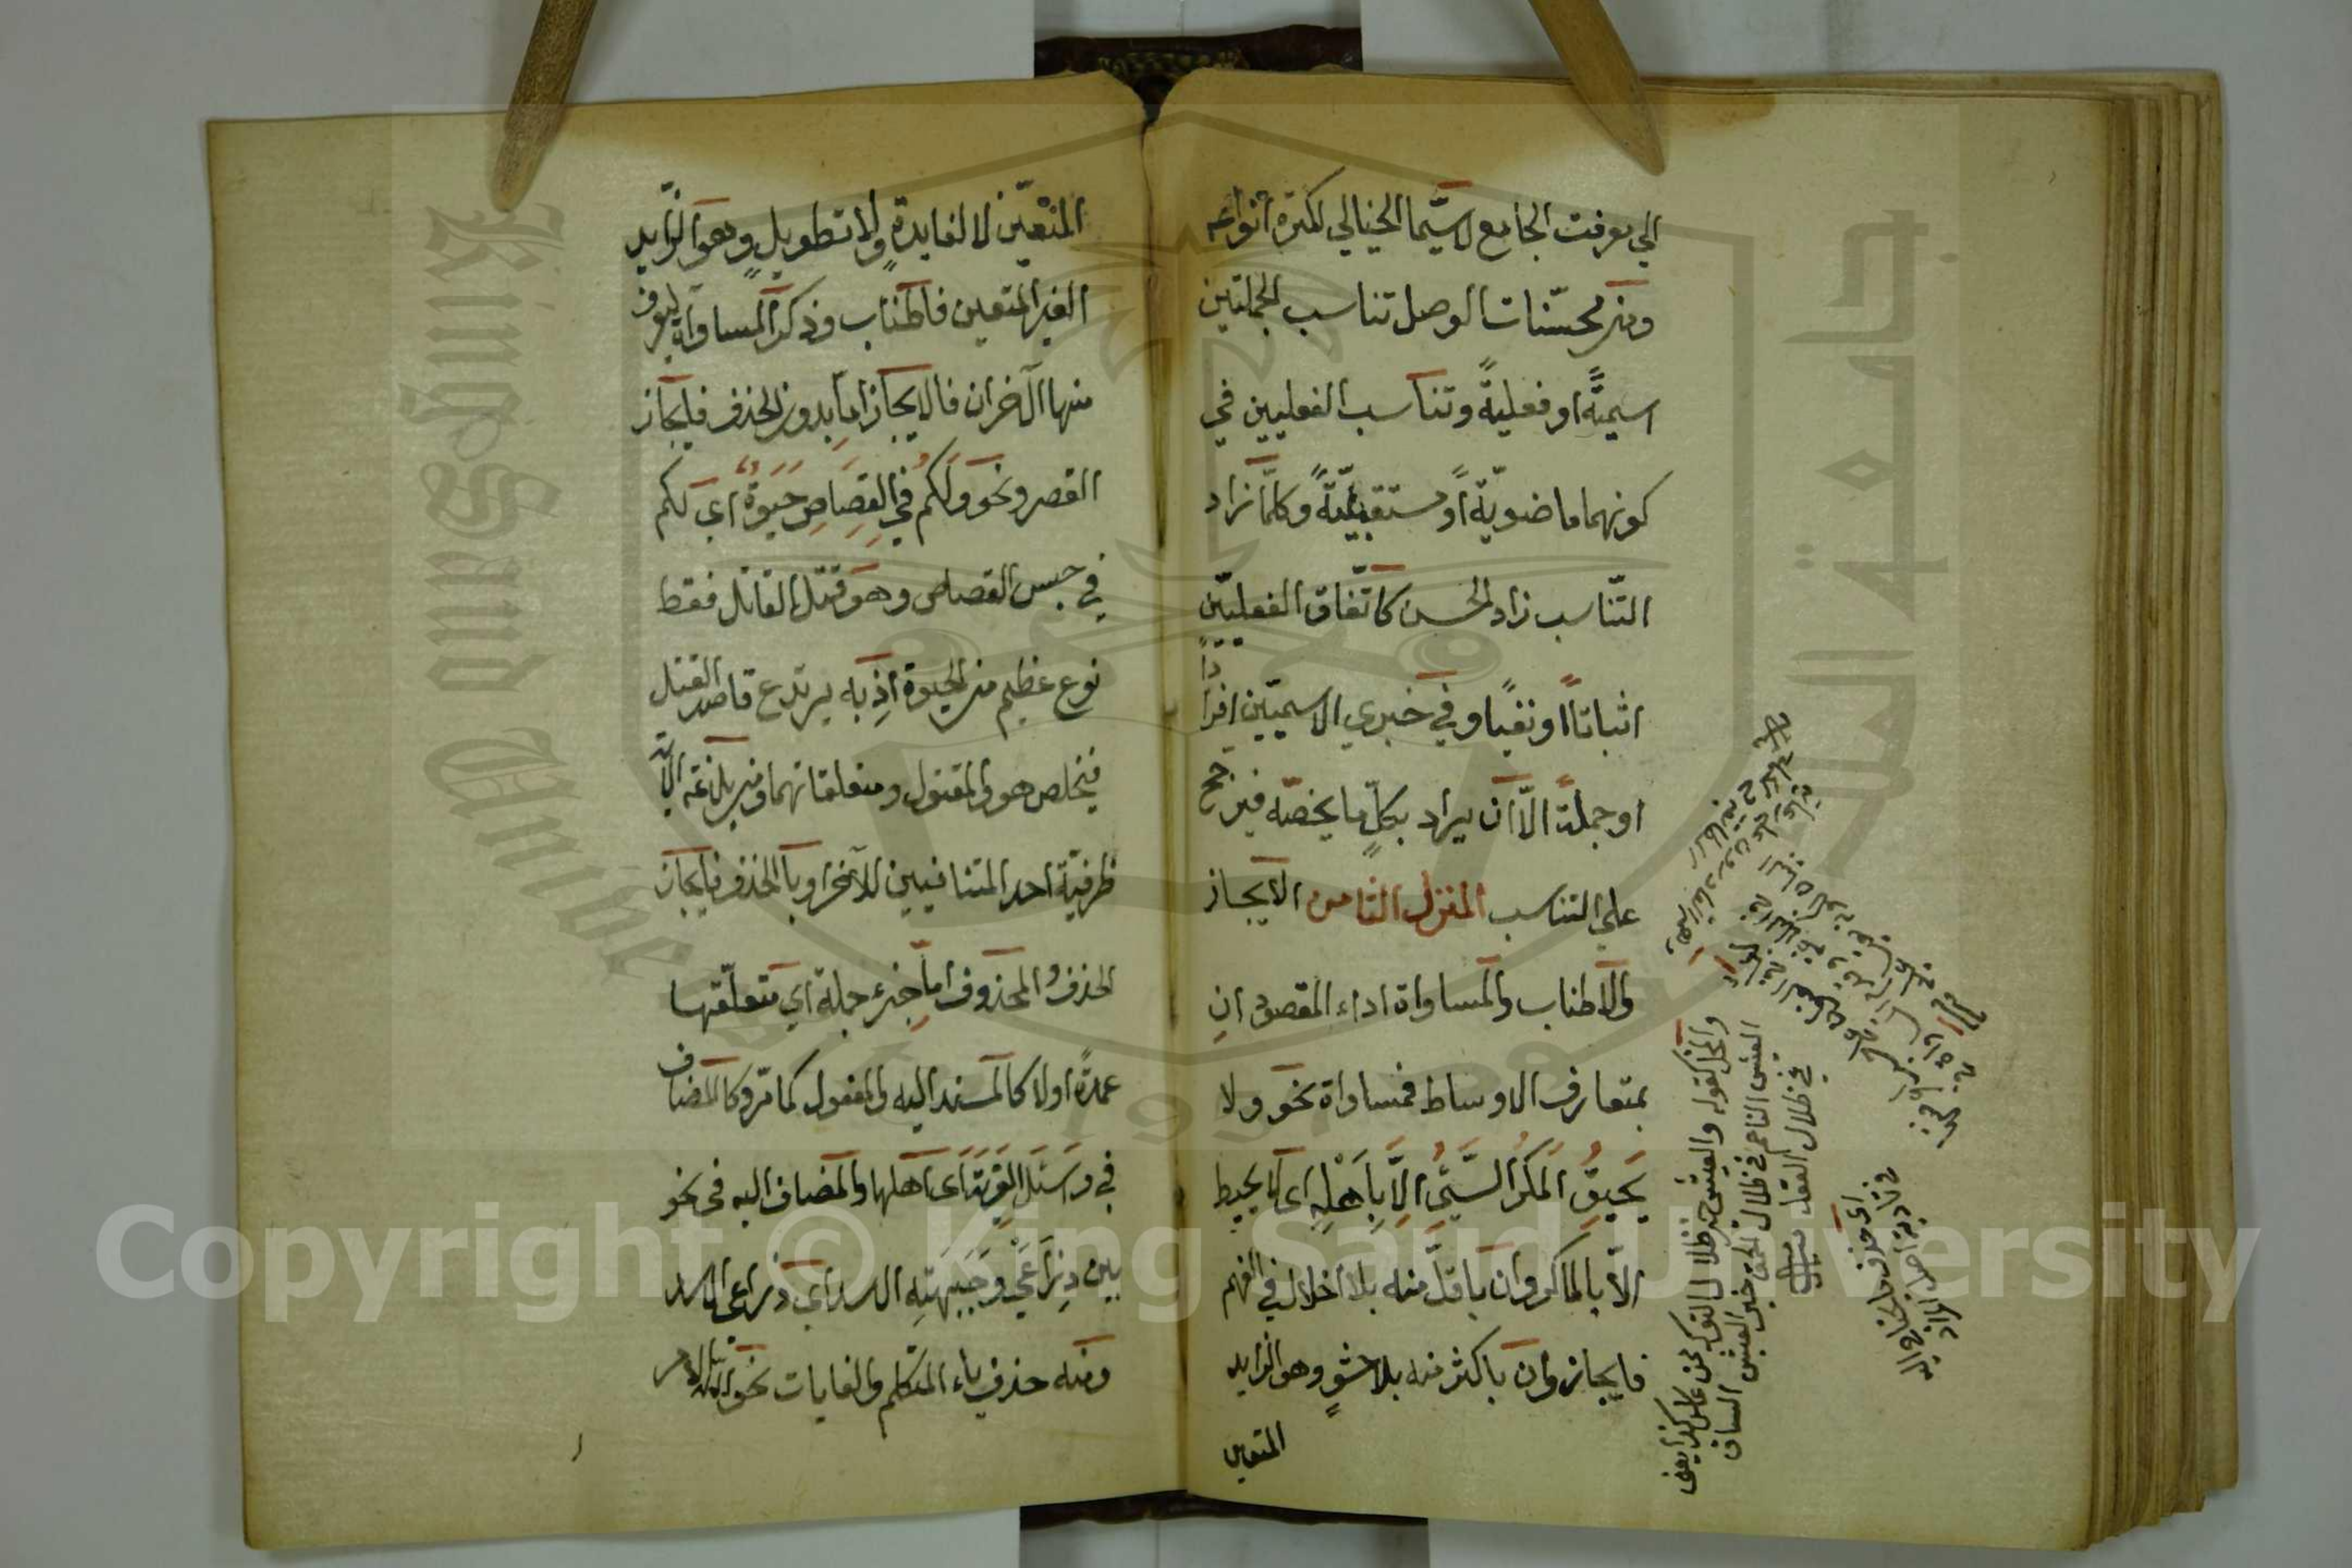 الي معرفت الجامع لاسيّما الخيالي لكثرة انواعه
ومن محسّنات الوصل تناسب الجملتين
اسميّةً او فعليةً وتناسب الفعليين في
كونهما ماضويّة او مستقبليّةً وكلّما زاد
التّناسب زاد الحسن كاتّفاق الفعليّين
اثباتاً او نفيًا وفي خبري الاسميّين افرادًا
او جملةً الّا ان يراد بكلٍّ ما يخصّه فيرجح
علي التناسب المنزل الثامن الايجاز
والاطناب والمساواة اداء المقصود ان
بمتعارف الاوساط فمساواة نحو ولا
يَحِيقُ المَكْرُ السَّيِّئُ اِلَّا بِاَهْلِهِ اى لا يحيط
الّا بالماكر وان باقلّ منه بلا اخلال في الفهم
فايجاز وان باكثر منه بلا حشوٍ وهو الزايد
المتعين
المتعيّن لا لفايدةٍ ولا تطويلٍ وهو الزّايد
الغير المتعين فاطناب وذكر المساواة ليعرف
منها الآخران فالايجاز اما بدون الحذف فايجاز
القصر ونحو ولكم في القصاص حيوة اى لكم
في حبس القصاص وهو قتل القاتل فقط
نوع عظيم من الحيوة اذ به يرتدع قاصد القتل
فيخلص هو والمقتول ومتعلقاتهما ومن بلاغة الآية
ظرفيّة احد المتنافيين للآخر او بالحذف فايجاز
الحذف والمحذوف امّا جزء جملة اي متعلّقها
عمدةً اولا كالمسند اليه والمفعول كما مرّ وكالمضاف
في وَسْئَلِ القَرْيَةَ اى اهلها والمضاف اليه فى نحو
بين ذِرَاعَيْ وجَبْهَتِهِ الاسد اي ذراعى الاسد
ومنه حذف ياء المتكلم والغايات نحو
والمخل كقوله والعيش خير فى ظلال النوك ممن عاش كدا يعنى
العيش الناعم فى ظلال الحمق خير من العيش الشاق
في ظلال العقل
King Saud University
جامعة الملك سعود
1957
Copyright © King Saud University